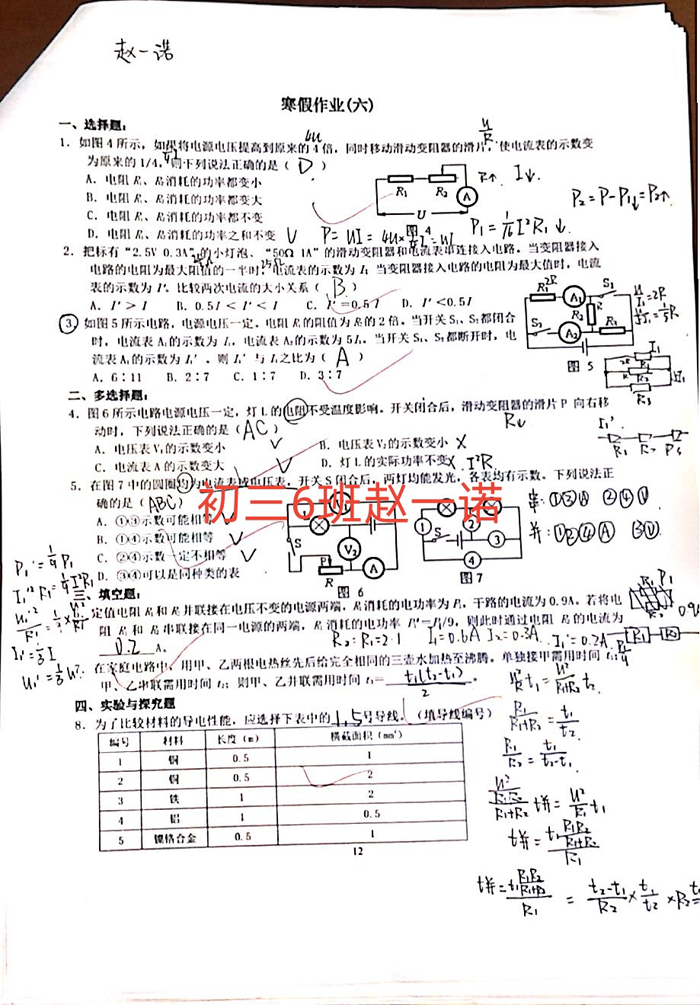 赵一诺
寒假作业(六)
一、选择题:
1. 如图4所示，如果将电源电压提高到原来的4倍，同时移动滑动变阻器的滑片，使电流表的示数变
为原来的1/4，则下列说法正确的是（ D ）
A. 电阻R₁、R₂消耗的功率都变小
B. 电阻R₁、R₂消耗的功率都变大
C. 电阻R₁、R₂消耗的功率都不变
D. 电阻R₁、R₂消耗的功率之和不变
R↑ I↓
P₂=P-P₁↓=P₂↑
P₁=1/16 I²R₁↓
2. 把标有“2.5V 0.3A”的小灯泡、“50Ω 1A”的滑动变阻器和电流表串连接入电路。当变阻器接入
电路的电阻为最大阻值的一半时，电流表的示数为I；当变阻器接入电路的电阻为最大值时，电流
表的示数为I′。比较两次电流的大小关系（ B ）
A. I′>I B. 0.5I<I′<I C. I′=0.5I D. I′<0.5I
3. 如图5所示电路，电源电压一定，电阻R₁的阻值为R₂的2倍。当开关S₁、S₂都闭合
时，电流表A₁的示数为I₁，电流表A₂的示数为5I₁。当开关S₁、S₂都断开时，电
流表A₁的示数为I₁′。则I₁′与I₁之比为（ A ）
A. 6∶11 B. 2∶7 C. 1∶7 D. 3∶7
图 5
二、多选择题:
4. 图6所示电路电源电压一定，灯L的电阻不受温度影响。开关闭合后，滑动变阻器的滑片P 向右移
动时，下列说法正确的是（AC）
R↓
A. 电压表V₁的示数变小 B. 电压表V₂的示数变小
C. 电流表A的示数变大 D. 灯L的实际功率不变
I²R
5. 在图7中的圆圈均为电流表或电压表，开关S闭合后，两灯均能发光，各表均有示数。下列说法正
确的是（ABC）
A. ①③示数可能相等
B. ①④示数可能相等
C. ②④示数一定不相等
D. ③④可以是同种类的表
图 6
图 7
初三6班赵一诺
串:①③Ⓐ ②④Ⓥ
并:①②④Ⓐ ③Ⓥ
三、填空题:
定值电阻R₁和R₂并联接在电压不变的电源两端，R₁消耗的电功率为P₁，干路的电流为0.9A。若将电
阻R₁和R₂串联接在同一电源的两端，R₁消耗的电功率P₁′=P₁/9，则此时通过电阻R₁的电流为
0.2 A。
R₂:R₁=2:1 I₁=0.6A I₂=0.3A I₁′=0.2A
P₁′=1/9 P₁
I₁′²R₁=1/9 I²R₁
I₁′=1/3 I
U₁′=1/3 U
在家庭电路中，用甲、乙两根电热丝先后给完全相同的三壶水加热至沸腾。单独接甲需用时间t₁；
甲、乙串联需用时间t₂；则甲、乙并联需用时间t₃= t₁(t₂-t₁)/2 。
四、实验与探究题
8. 为了比较材料的导电性能，应选择下表中的1,5号导线。（填导线编号）
编号 材料 长度（m） 横截面积（mm²）
1 铜 0.5 1
2 铜 0.5 2
3 铁 1 2
4 铝 1 0.5
5 镍铬合金 0.5 1
12